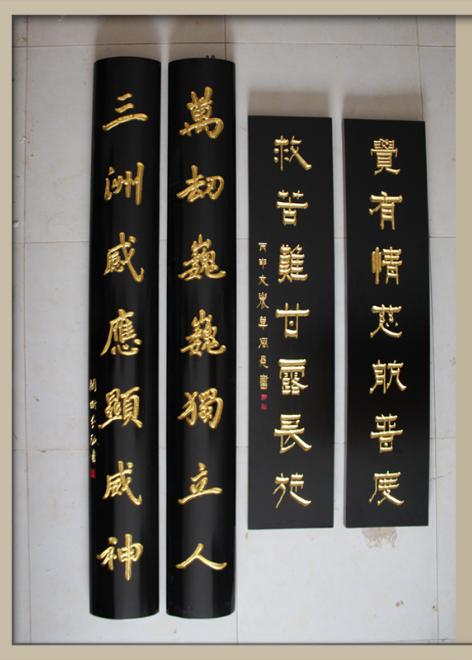 覺有情慈航普度
救苦難甘露長施
萬劫巍巍獨立人
三洲感應顯威神